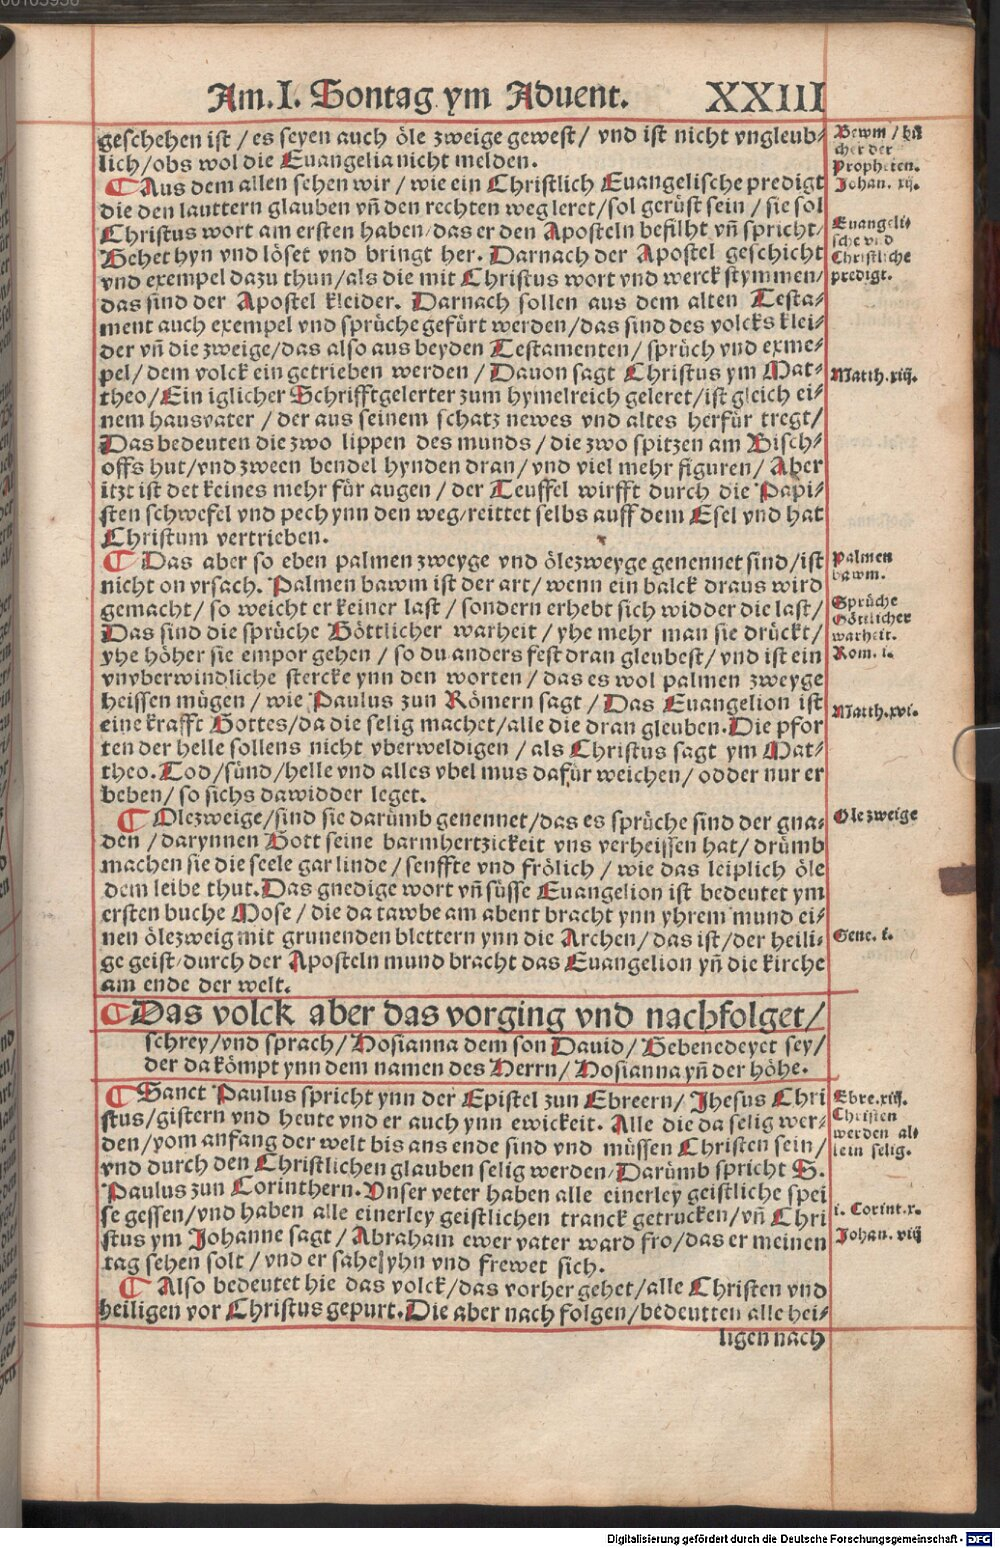 Am. I. Sontag ym Aduent. XXIII
geschehen ist / es seyen auch öle zweige gewest / vnd ist nicht vngleub-
lich / obs wol die Euangelia nicht melden.
¶ Aus dem allen sehen wir / wie ein Christlich Euangelische predigt
die den lauttern glauben vñ den rechten weg leret / sol gerüst sein / sie sol
Christus wort am ersten haben / das er den Aposteln befilht vñ spricht /
Gehet hyn vnd löset vnd bringt her. Darnach der Apostel geschicht
vnd exempel dazu thun / als die mit Christus wort vnd werck stymmen /
das sind der Apostel kleider. Darnach sollen aus dem alten Testa-
ment auch exempel vnd sprüche gefürt werden / das sind des volcks klei-
der vñ die zweige / das also aus beyden Testamenten / sprüch vnd exme-
pel / dem volck ein getrieben werden / Dauon sagt Christus ym Mat-
theo / Ein iglicher Schrifftgelerter zum hymelreich geleret / ist gleich ei-
nem hausvater / der aus seinem schatz newes vnd altes herfür tregt /
Das bedeuten die zwo lippen des munds / die zwo spitzen am Bisch-
offs hut / vnd zween bendel hynden dran / vnd viel mehr figuren / Aber
itzt ist det keines mehr für augen / der Teuffel wirfft durch die Papi-
sten schwefel vnd pech ynn den weg / reittet selbs auff dem Esel vnd hat
Christum vertrieben.
¶ Das aber so eben palmen zweyge vnd ölezweyge genennet sind / ist
nicht on vrsach. Palmen bawm ist der art / wenn ein balck draus wird
gemacht / so weicht er keiner last / sondern erhebt sich widder die last /
Das sind die sprüche Göttlicher warheit / yhe mehr man sie drückt /
yhe höher sie empor gehen / so du anders fest dran gleubest / vnd ist ein
vnvberwindliche stercke ynn den worten / das es wol palmen zweyge
heissen mügen / wie Paulus zun Römern sagt / Das Euangelion ist
eine krafft Gottes / da die selig machet / alle die dran gleuben. Die pfor
ten der helle sollens nicht vberweldigen / als Christus sagt ym Mat-
theo. Tod / sünd / helle vnd alles vbel mus dafür weichen / odder nur er
beben / so sichs dawidder leget.
¶ Olezweige / sind sie darümb genennet / das es sprüche sind der gna-
den / darynnen Gott seine barmhertzickeit vns verheissen hat / drümb
machen sie die seele gar linde / senffte vnd frölich / wie das leiplich öle
dem leibe thut. Das gnedige wort vñ süsse Euangelion ist bedeutet ym
ersten buche Mose / die da tawbe am abent bracht ynn yhrem mund ei-
nen ölezweig mit grunenden blettern ynn die Archen / das ist / der heili-
ge geist / durch der Aposteln mund bracht das Euangelion yñ die kirche
am ende der welt.
¶ Das volck aber das vorging vnd nachfolget /
schrey / vnd sprach / Hosianna dem son Dauid / Gebenedeyet sey /
der da kömpt ynn dem namen des Herrn / Hosianna yñ der höhe.
¶ Sanct Paulus spricht ynn der Epistel zun Ebreern / Jhesus Chri
stus / gistern vnd heute vnd er auch ynn ewickeit. Alle die da selig wer-
den / vom anfang der welt bis ans ende sind vnd müssen Christen sein /
vnd durch den Christlichen glauben selig werden / Darümb spricht S.
Paulus zun Corinthern. Vnser veter haben alle einerley geistliche spei
se gessen / vnd haben alle einerley geistlichen tranck getrucken / vñ Chri
stus ym Johanne sagt / Abraham ewer vater ward fro / das er meinen
tag sehen solt / vnd er sahe yhn vnd frewet sich.
¶ Also bedeutet hie das volck / das vorher gehet / alle Christen vnd
heiligen vor Christus gepurt. Die aber nach folgen / bedeutten alle hei-
ligen nach
Bewm / bü
cher der
Propheten.
Johan. xij.
Euangeli-
sche vnd
Christliche
predigt.
Matth. xiij.
Palmen
bawm.
Sprüche
Göttlicher
warheit.
Rom. i.
Matth. xvi.
Ole zweige
Gene. i.
Ebre. xiij.
Christen
werden al-
lein selig.
i. Corint. x.
Johan. viij
Digitalisierung gefördert durch die Deutsche Forschungsgemeinschaft - DFG